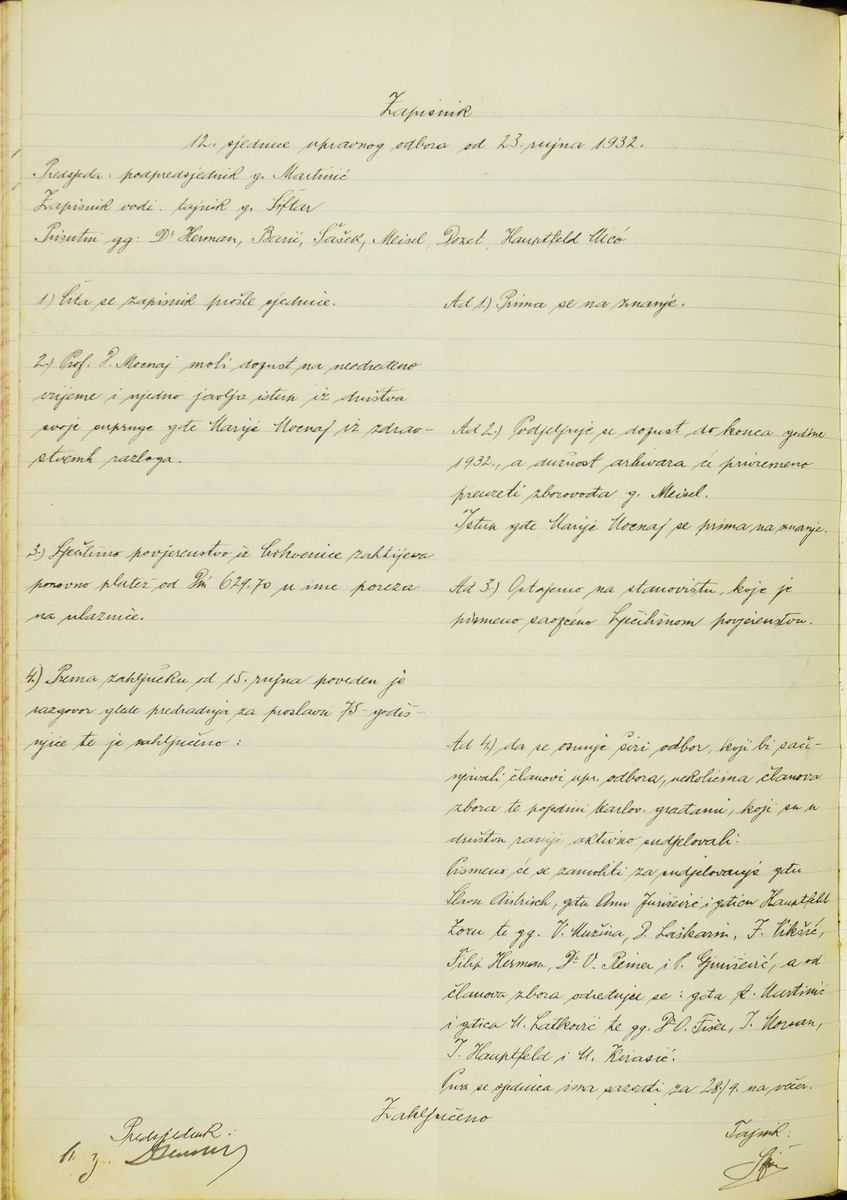 Zapisnik
12. sjednice upravnog odbora od 23. rujna 1932.
Predsjeda: podpredsjednik g. Martinić
Zapisnik vodi: tajnik g. Šiftar
Prisutni gg: Dr Herman, Barić, Šašek, Meisel, Dozet, Hauptfeld Mićo
1) Čita se zapisnik prošle sjednice.
Ad 1.) Prima se na znanje.
2.) Prof. Mocnaj moli dopust na neodređeno
vrijeme i ujedno javlja istup iz društva
svoje supruge gđe Marije Mocnaj iz zdrav-
stvenih razloga.
Ad 2.) Podjeljuje se dopust do konca godine
1932., a dužnost arhivara će privremeno
preuzeti zborovođa g. Meisel.
Istup gđe Marije Mocnaj se prima na znanje.
3.) Lječilišno povjerenstvo iz Crikvenice zahtijeva
ponovno platež od Din 629.70 u ime poreza
na ulaznice.
Ad 3.) Ostajemo na stanovištu, koje je
pismeno saopćeno Lječilišnom povjerenstvu.
4.) Prema zaključku od 15. rujna poveden je
razgovor glede predradnja za proslavu 75-godiš-
njice te je zaključeno:
Ad 4.) da se osnuje širi odbor, koji bi sači-
njavali članovi upr. odbora, nekolicina članova
zbora te pojedini karlov. građani, koji su u
društvu ranije aktivno sudjelovali:
Pismeno će se zamoliti za sudjelovanje gđu
Slavu, gđu Anu Jurišević i gđicu Hauptfeld
Zoru te gg. V. Mužina, D. Laškarin, F. Vikšić,
Filip Herman, Dr V. Reiner i, a od
članova zbora određuju se: gđa Martinić
i gđica M. Latković te gg. Dr O. Fišer, I. Morsan,
I. Hauptfeld i M. Kirasić.
Prva se sjednica ima sazvati za 28./9. na večer.
Zaključeno
Predsjednik:
Tajnik: